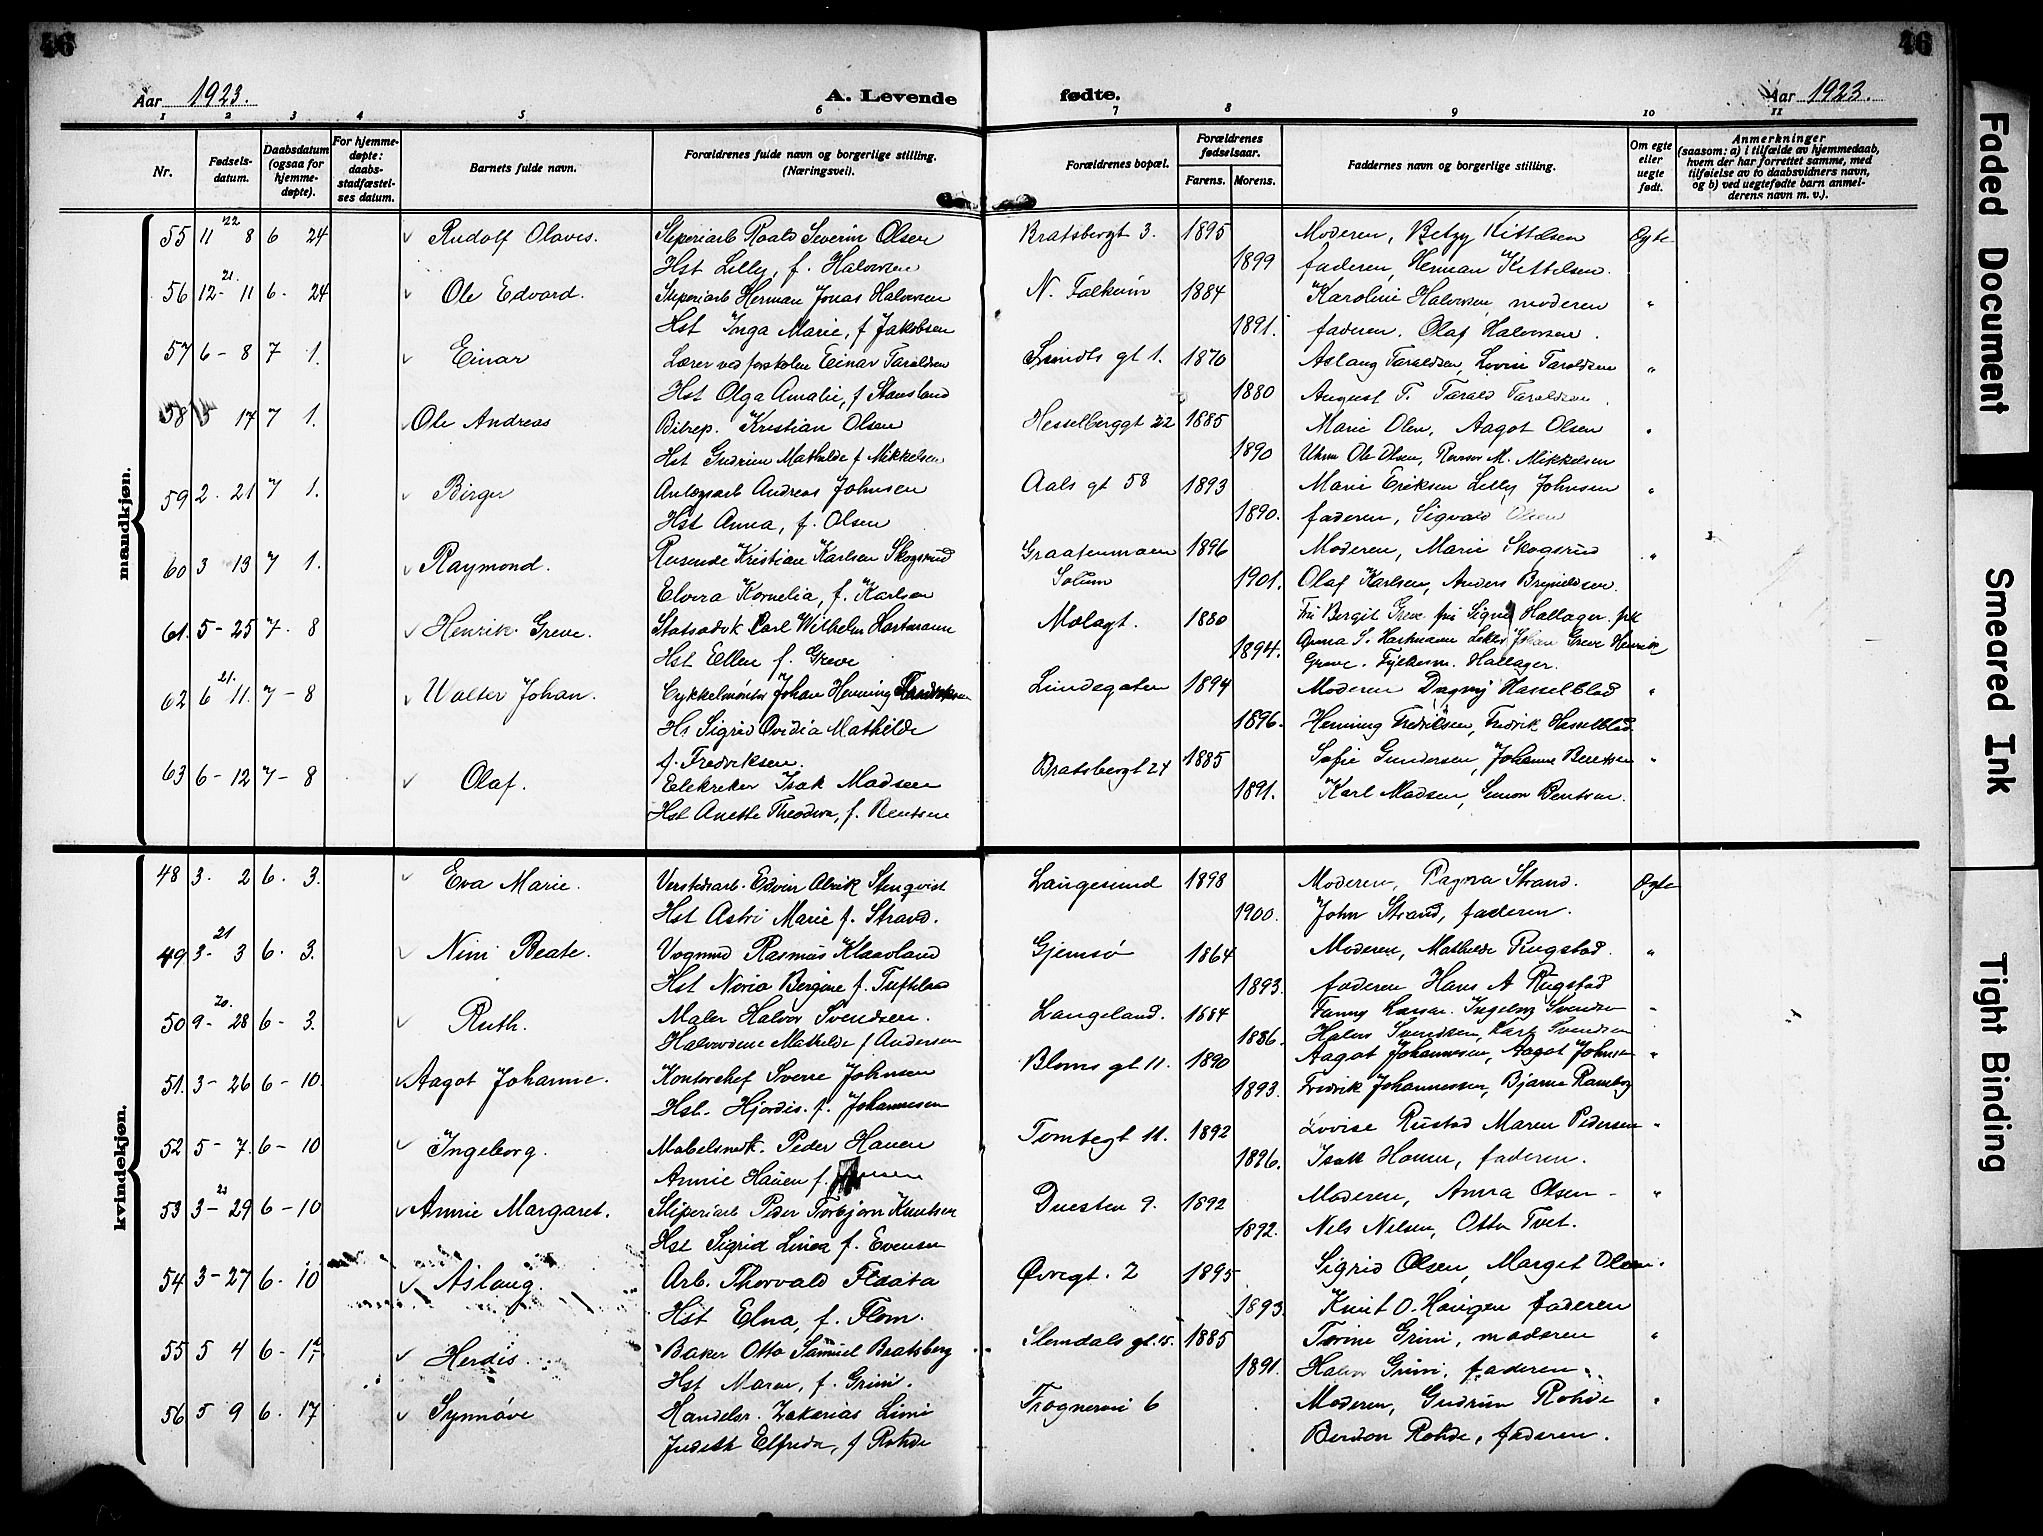 46
46
Aar 1923.
A. Levende
fødte.
Aar 1923.
1 2 3 4 5 6 7 8 9 10 11
Nr.
Fødsels-
datum.
Daabsdatum
(ogsaa for
hjemme-
døpte).
For hjemme-
døpte:
daabs-
stadfæstel-
ses datum.
Barnets fulde navn.
Forældrenes fulde navn og borgerlige stilling.
(Næringsvei).
Forældrenes bopæl.
Forældrenes
fødselsaar.
Farens. Morens.
Faddernes navn og borgerlige stilling.
Om egte
eller
uegte
født.
Anmerkninger
(saasom: a) i tilfælde av hjemmedaab,
hvem der har forrettet samme, med
tilføielse av to daabsvidners navn,
og b) ved uegtefødte barn anmel-
derens navn m. v.).
mandkjøn.
55 11 22 8 6 24 Rudolf Olaves. Sliperiarb Roald Severin Olsen Bratsbergt 3. 1895 Moderen, Betzy Kittelsen Egte
Hst Lilly, f. Halvorsen 1899 faderen, Herman Kittelsen.
56 12- 21. 11 6. 24 Ole Edvard. Sliperiarb Herman Jonas Halvorsen N. Falkum 1884 Karoline Halvorsen, moderen "
Hst Inga Marie, f Jakobsen 1891. faderen. Olaf Halvorsen.
57 6 - 8 7 1. Einar Lærer ved forskolen Einar Taraldsen Lunds gt 1. 1870 Aslaug Taraldsen, Lovise Taraldsen "
Hst Olga Amalie, f Stausland 1880 August T. Tarald Taraldsen.
58 5 17 7 1. Ole Andreas Bitrep. Kristian Olsen Hesselberggt 22 1885 Marie Olsen, Aagot Olsen "
Hst Gudrun Mathilde f Mikkelsen 1890 Uhrm Ole Olsen, Revisor M. Mikkelsen
59 2. 21 7 1. Birger Anlægsarb Andreas Johnsen Aals gt 58 1893 Marie Eriksen Lilly Johnsen "
Hst Anna, f. Olsen 1890. faderen, Sigvald Olsen
60 3 13 7 1. Raymond. Reisende Kristian Karlsen Skogsrud Graatenmoen 1896 Moderen, Marie Skogsrud "
Solum
Elvira Kornelia, f. Karlsen 1901. Olaf Karlsen, Anders Brynildsen.
61. 5 - 25 7. 8 Henrik Greve. Statsadvk Carl Wilhelm Hartmann Molagt. 1880 Fru Bergit Greve. fru Signe Hallager. frk
Hst Ellen f. Greve 1894. Anna S. Hartmann Johan Greve Henrik
Greve. Fylkesm. Hallager.
62 6 21. 11. 7 - 8 Walter Johan. Cykkelmontør Johan Henning Fredriksen Lundegaten 1894 Moderen Dagny Hasselblad "
Hs Sigrid Ovidia Mathilde 1896. Henning Fredriksen, Fredrik Hasselblad
f. Fredriksen.
63 6 - 12 7 - 8 Olaf. Elektriker Isak Madsen Bratsbergt 24 1885 Sofie Gundersen, Johanne Bentsen "
Hst Anette Theodora, f. Bentsen 1891. Karl Madsen, Simon Bentsen.
kvindekjøn.
48 3. 2 6. 3. Eva Marie. Verkstedsarb. Edvin Alrik Stenqvist Langesund 1898 Moderen, Ragna Strand. Egte
Hst Astri Marie f. Strand. 1900. John Strand, faderen.
49 3- 21 3 6. 3. Nini Beate. Vognmd Rasmus Klaavland Gjemsø 1864 Moderen, Mathilde Rugstad. "
Hst Noria Bergine f. Tufteland 1893. faderen Hans A Rugstad
50 9- 20. 28 6 - 3. Ruth. Maler Halvor Svendsen. Langeland. 1884 Fanny Larsen. Ingeborg Svendsen "
Halvordine Mathilde f Andersen 1886. Halvor Svendsen, Karl Svendsen
51. 3 - 26 6 - 10. Aagot Johanne. Kontorchef Sverre Johnsen Bloms gt 11. 1890 Aagot Johannesen, Aagot Johnsen "
Hst. Hjordis. f. Johannesen 1893. Fredrik Johannessen, Bjarne Ramberg
52 5 - 7. 6 - 10 Ingeborg. Møbelsnek. Peder Hauen Tomtegt 11. 1892 Lovise Rustad Maren Pedersen "
Annie Hauen f. Jensen 1896. Isak Hauen, faderen.
53 3- 29 6 - 10 Annie Margaret. Sliperiarb Peder Torbjørn Knutsen Duesten 9. 1892 Moderen, Anna Olsen - "
Hst Sigrid Linea f. Evensen 1892. Nils Nilsen, Otto Tvet.
54 3 - 27 6. 10 Aslaug. Arb. Thorvald Flaata Øvregt. 2 1895 Sigrid Olsen, Marget Olsen.
Hst Elna, f. Flom. 1893. Knut O. Haugen faderen
55 5 4 6 - Herdis. Baker Otto Samuel Bratsberg Slemdals gt. 15. 1885 Torine Grini, moderen "
Hst Maren, f. Grini. 1891. Halvor Grini, faderen.
56 5 9 6. 17 Synnøve Handelsr. Zakarias Limi Frogneravei 6 Moderen, Gudrun Rohde "
Judith Elfrida, f Rohde Berdon Rohde, faderen.
Faded Document
Smeared Ink
Tight Binding